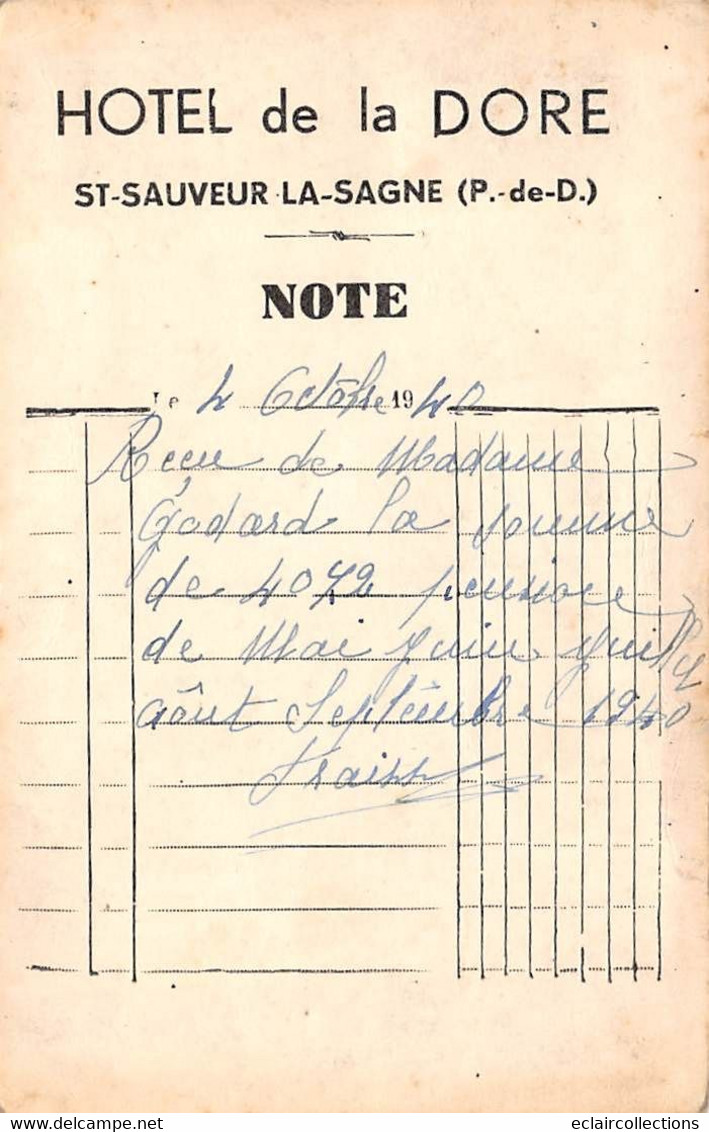 HOTEL de la DORE
ST-SAUVEUR-LA-SAGNE (P.-de-D.)
NOTE
Le 4 Octôbre 1940
Reçu de Madame
Godard la somme
de 4072 pension
de Mai Juin Juillet
Août Septembre 1940
eclaircollections